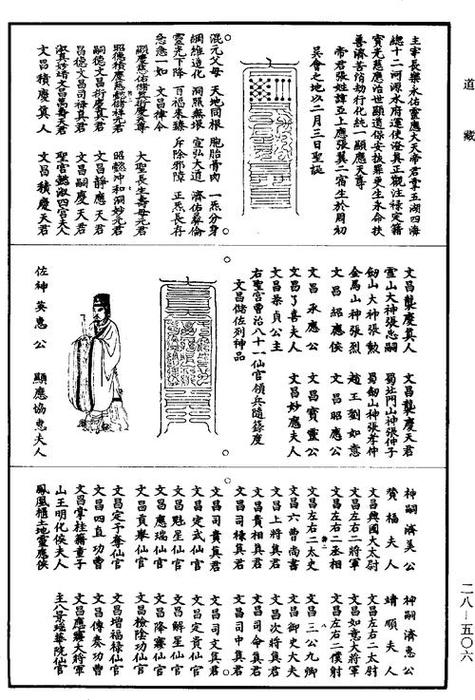 道藏
主宰長樂永佑靈應大天帝君掌五湖四海
總十二河源水府運使證真正觀注祿定籍
寶光慈應治世顯道保安拔罪更生永命扶
善濟苦消劫行化統一顯應天尊
帝君張姓諱亞上應張翼二宿生於周初
吳會之地以二月三日聖誕
混元父母 天地同根 胞胎骨肉 一炁分身
綱維造化 洞照無垠 宣弘大道 濟佑羣倫
靈光下降 百福來臻 斥除邪障 正炁長存
急急一如 文昌律令
顯慶慈佑儲真衍慶天尊 大聖長生壽母元君
昭德積慶慈懿儲祥元君 昭懿冲和洞妙元君
嗣德文昌衍慶真君 文昌靜應天君
昌德文昌司祿真君 文昌嗣慶天君
淑真妙靖文昌嵩壽元君 聖宮懿淑四宮夫人
文昌積慶真人 文昌積慶天君
文昌襲慶真人 文昌襲慶天君
靈山大神張忠嗣 蜀北門山神張仲子
劍山大神張勳 蜀劍山神張孝仲
金馬山神張烈 趙王劉如意
文昌紹應侯 文昌昭應公
文昌承應公 文昌寶靈公
文昌了喜夫人 文昌妙應夫人
文昌柔貞公主
右聖宮曹治八十一仙官領兵隨籙度
文昌儲佐列神品
佐神英惠公 顯應協惠夫人
神嗣濟美公 神嗣濟惠公
贊福夫人 靖順夫人
文昌興國大太尉 文昌左右二太尉
文昌左右二將軍 文昌如意大將軍
文昌左右二丞相 文昌左右二僕射
文昌左右二太史 文昌三公九卿
文昌六曹尚書 文昌御史大夫
文昌上將真君 文昌次將真君
文昌貴相真君 文昌司命真君
文昌司祿真君 文昌司中真君
文昌司貴真君 文昌司文真君
文昌定武仙官 文昌定貴仙官
文昌魁星仙官 文昌解星仙官
文昌應瑞仙官 文昌降靈仙官
文昌貢舉仙官 文昌檢陰功仙官
文昌定予奪仙官 文昌增福祿仙官
文昌四直功曹 文昌傳奏功曹
文昌掌桂籍童子 文昌應夢大將軍
山王明化侯夫人 主八景瑤華院仙官
鳳凰樞土地靈應侯
二八—五〇六